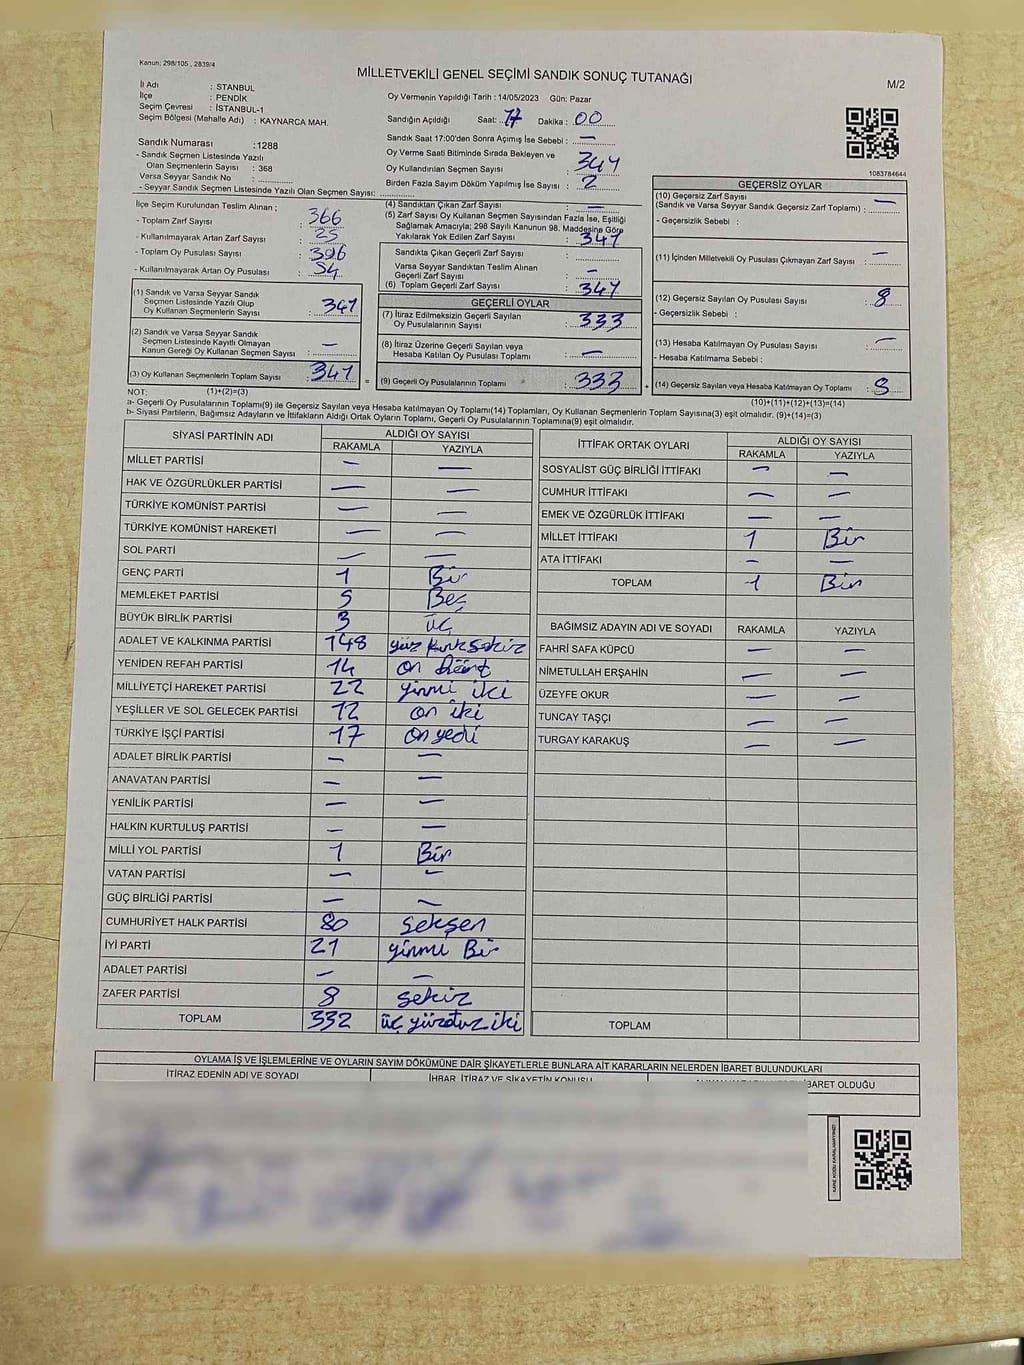 Kanun: 298/105 , 2839/4
MİLLETVEKİLİ GENEL SEÇİMİ SANDIK SONUÇ TUTANAĞI
M/2
İl Adı : İSTANBUL
İlçe : PENDİK
Seçim Çevresi : İSTANBUL-1
Seçim Bölgesi (Mahalle Adı) : KAYNARCA MAH.
Sandık Numarası :1288
- Sandık Seçmen Listesinde Yazılı
Olan Seçmenlerin Sayısı : 368
Varsa Seyyar Sandık No :
- Seyyar Sandık Seçmen Listesinde Yazılı Olan Seçmen Sayısı:
Oy Vermenin Yapıldığı Tarih : 14/05/2023 Gün: Pazar
Sandığın Açıldığı Saat: 17 Dakika : 00
Sandık Saat 17:00'den Sonra Açımış İse Sebebi : —
Oy Verme Saati Bitiminde Sırada Bekleyen ve
Oy Kullandırılan Seçmen Sayısı : 341
Birden Fazla Sayım Döküm Yapılmış İse Sayısı : 2
1083784644
İlçe Seçim Kurulundan Teslim Alınan ;
- Toplam Zarf Sayısı : 366
- Kullanılmayarak Artan Zarf Sayısı : 25
- Toplam Oy Pusulası Sayısı : 396
- Kullanılmayarak Artan Oy Pusulası : 54
(1) Sandık ve Varsa Seyyar Sandık
Seçmen Listesinde Yazılı Olup
Oy Kullanan Seçmenlerin Sayısı : 341
(2) Sandık ve Varsa Seyyar Sandık
Seçmen Listesinde Kayıtlı Olmayan
Kanun Gereği Oy Kullanan Seçmen Sayısı : —
(3) Oy Kullanan Seçmenlerin Toplam Sayısı : 341
(1)+(2)=(3)
(4) Sandıktan Çıkan Zarf Sayısı : —
(5) Zarf Sayısı Oy Kullanan Seçmen Sayısından Fazla İse, Eşitliği
Sağlamak Amacıyla; 298 Sayılı Kanunun 98. Maddesine Göre
Yakılarak Yok Edilen Zarf Sayısı : 341
Sandıkta Çıkan Geçerli Zarf Sayısı :
Varsa Seyyar Sandıktan Teslim Alınan
Geçerli Zarf Sayısı : —
(6) Toplam Geçerli Zarf Sayısı : 341
GEÇERLİ OYLAR
(7) İtiraz Edilmeksizin Geçerli Sayılan
Oy Pusulalarının Sayısı : 333
(8) İtiraz Üzerine Geçerli Sayılan veya
Hesaba Katılan Oy Pusulası Toplamı : —
= (9) Geçerli Oy Pusulalarının Toplamı : 333 +
GEÇERSİZ OYLAR
(10) Geçersiz Zarf Sayısı
(Sandık ve Varsa Seyyar Sandık Geçersiz Zarf Toplamı) : —
- Geçersizlik Sebebi :
(11) İçinden Milletvekili Oy Pusulası Çıkmayan Zarf Sayısı : —
(12) Geçersiz Sayılan Oy Pusulası Sayısı : 8
- Geçersizlik Sebebi :
(13) Hesaba Katılmayan Oy Pusulası Sayısı : —
- Hesaba Katılmama Sebebi :
(14) Geçersiz Sayılan veya Hesaba Katılmayan Oy Toplamı : 8
(10)+(11)+(12)+(13)=(14)
NOT:
a- Geçerli Oy Pusulalarının Toplamı(9) ile Geçersiz Sayılan veya Hesaba katılmayan Oy Toplamı(14) Toplamları, Oy Kullanan Seçmenlerin Toplam Sayısına(3) eşit olmalıdır. (9)+(14)=(3)
b- Siyasi Partilerin, Bağımsız Adayların ve İttifakların Aldığı Ortak Oyların Toplamı, Geçerli Oy Pusulalarının Toplamına(9) eşit olmalıdır.
SİYASİ PARTİNİN ADI ALDIĞI OY SAYISI
RAKAMLA YAZIYLA
MİLLET PARTİSİ — —
HAK VE ÖZGÜRLÜKLER PARTİSİ — —
TÜRKİYE KOMÜNİST PARTİSİ — —
TÜRKİYE KOMÜNİST HAREKETİ — —
SOL PARTİ — —
GENÇ PARTİ 1 Bir
MEMLEKET PARTİSİ 5 Beş
BÜYÜK BİRLİK PARTİSİ 3 üç
ADALET VE KALKINMA PARTİSİ 148 yüz kırk sekiz
YENİDEN REFAH PARTİSİ 14 on dört
MİLLİYETÇİ HAREKET PARTİSİ 22 yirmi iki
YEŞİLLER VE SOL GELECEK PARTİSİ 12 on iki
TÜRKİYE İŞÇİ PARTİSİ 17 on yedi
ADALET BİRLİK PARTİSİ — —
ANAVATAN PARTİSİ — —
YENİLİK PARTİSİ — —
HALKIN KURTULUŞ PARTİSİ — —
MİLLİ YOL PARTİSİ 1 Bir
VATAN PARTİSİ — —
GÜÇ BİRLİĞİ PARTİSİ — —
CUMHURİYET HALK PARTİSİ 80 seksen
İYİ PARTİ 21 yirmi Bir
ADALET PARTİSİ — —
ZAFER PARTİSİ 8 sekiz
TOPLAM 332 üç yüzotuz iki
İTTİFAK ORTAK OYLARI ALDIĞI OY SAYISI
RAKAMLA YAZIYLA
SOSYALİST GÜÇ BİRLİĞİ İTTİFAKI — —
CUMHUR İTTİFAKI — —
EMEK VE ÖZGÜRLÜK İTTİFAKI — —
MİLLET İTTİFAKI 1 Bir
ATA İTTİFAKI — —
TOPLAM 1 Bir
BAĞIMSIZ ADAYIN ADI VE SOYADI RAKAMLA YAZIYLA
FAHRİ SAFA KÜPCÜ — —
NİMETULLAH ERŞAHİN — —
ÜZEYFE OKUR — —
TUNCAY TAŞÇI — —
TURGAY KARAKUŞ — —
TOPLAM
OYLAMA İŞ VE İŞLEMLERİNE VE OYLARIN SAYIM DÖKÜMÜNE DAİR ŞİKAYETLERLE BUNLARA AİT KARARLARIN NELERDEN İBARET BULUNDUKLARI
İTİRAZ EDENİN ADI VE SOYADI İHBAR, İTİRAZ VE ŞİKAYETİN KONUSU İBARET OLDUĞU